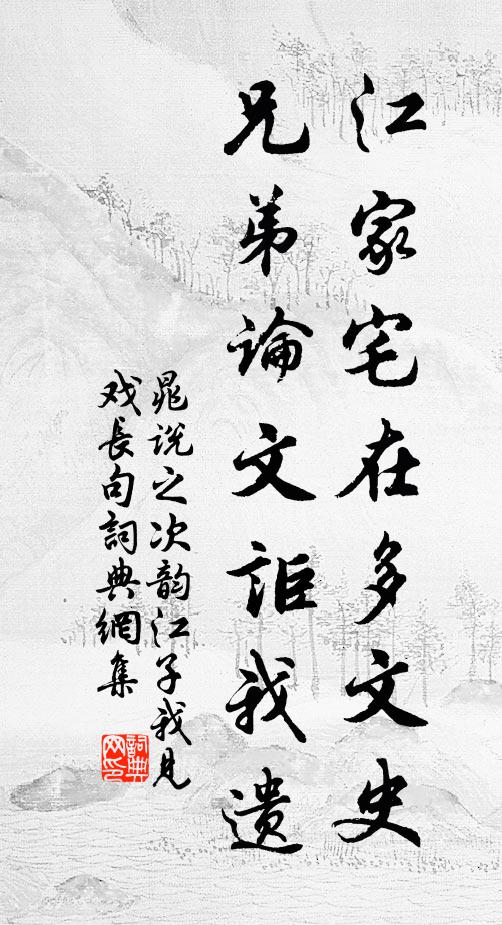 江家宅在多文史
兄弟論文詎我遺
晁说之次韵江子我見
戏長句詞典網集
詞典网印